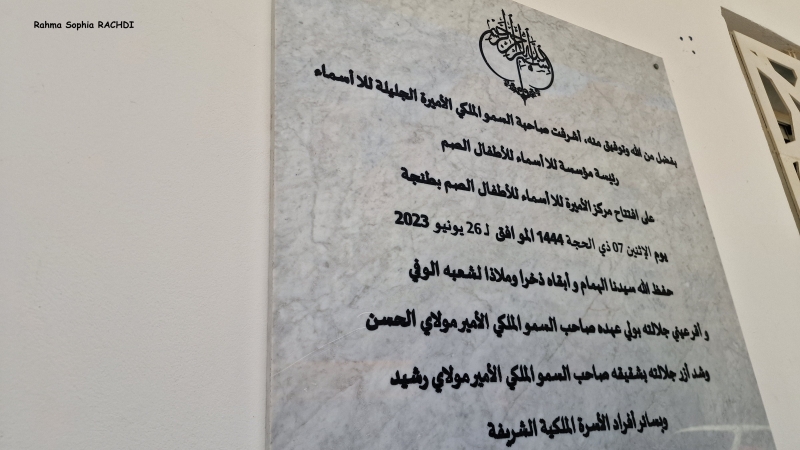 Rahma Sophia RACHDI
بسم الله الرحمن الرحيم
بفضل من الله وتوفيق منه، أشرفت صاحبة السمو الملكي الأميرة الجليلة للا أسماء
رئيسة مؤسسة للا أسماء للأطفال الصم
على افتتاح مركز الأميرة للا أسماء للأطفال الصم بطنجة
يوم الإثنين 07 ذي الحجة 1444 الموافق لـ 26 يونيو 2023
حفظ الله سيدنا الهمام وأبقاه ذخرا وملاذا لشعبه الوفي
و أقر عيني جلالته بولي عهده صاحب السمو الملكي الأمير مولاي الحسن
وشد أزر جلالته بشقيقه صاحب السمو الملكي الأمير مولاي رشيد
وبسائر أفراد الأسرة الملكية الشريفة